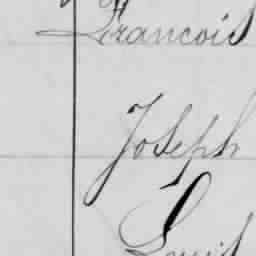 Francois
Joseph
Louis